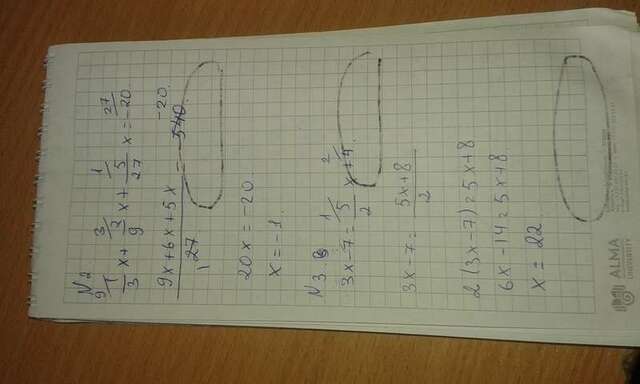 N2
9/ 1/3 x + 3/ 2/9 x + 1/ 5/27 x = 27/ -20
(9x+6x+5x)/27 = -20 540
1
20x = -20.
x = -1.
N3. 1/ 2/
3x-7 = 5/2 x + 4.
3x-7 = (5x+8)/2
2(3x-7) = 5x+8
6x-14 = 5x+8
x = 22.
ALMA
UNIVERSITY